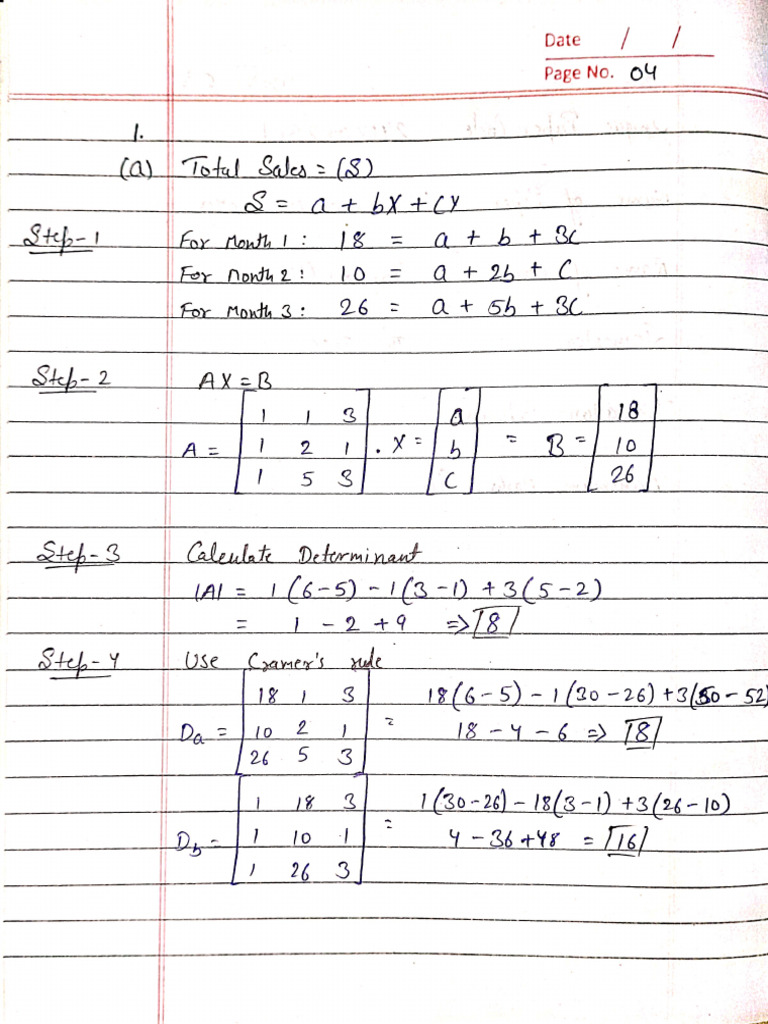 Date / /
Page No. 04
1.
(a) Total Sales = (S)
S = a + bX + CY
Step-1 For Month 1 : 18 = a + b + 3C
For Month 2 : 10 = a + 2b + C
For Month 3 : 26 = a + 5b + 3C
Step-2 AX = B
A = [1 1 3 . X = [a = B = [18
1 2 1 b 10
1 5 3] C] 26]
Step-3 Calculate Determinant
|A| = 1(6-5) - 1(3-1) + 3(5-2)
= 1 - 2 + 9 => 8
Step-4 Use Cramer's rule
Da = |18 1 3| = 18(6-5) - 1(30-26) + 3(50-52)
|10 2 1| 18 - 4 - 6 => 8
|26 5 3|
Db = |1 18 3| = 1(30-26) - 18(3-1) + 3(26-10)
|1 10 1| 4 - 36 + 48 = 16
|1 26 3|